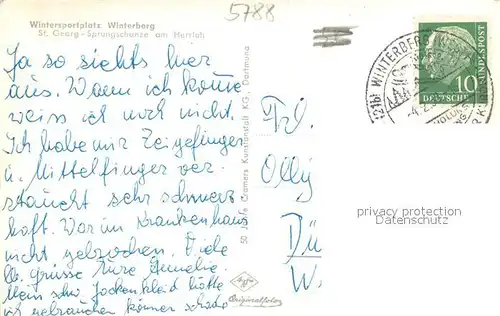 5788
Wintersportplatz Winterberg
St. Georg-Sprungschanze am Herrloh
Ja so siehts hier
aus. Wann ich komme
weiss ich noch nicht.
Ich habe mir Zeigefinger
u. Mittelfinger ver
staucht sehr schmerz
haft. War im Krankenhaus
nicht gebrochen. Viele
lb. Grüsse Eure
Mein hätte
ich gebrauchen können schade
50 Jahre Cramers Kunstanstalt KG., Dortmund
Agfa
Originalfoto
Frl.
Olly
Dü
W.
(21b) WINTERBERG
10
DEUTSCHE BUNDESPOST
privacy protection
Datenschutz